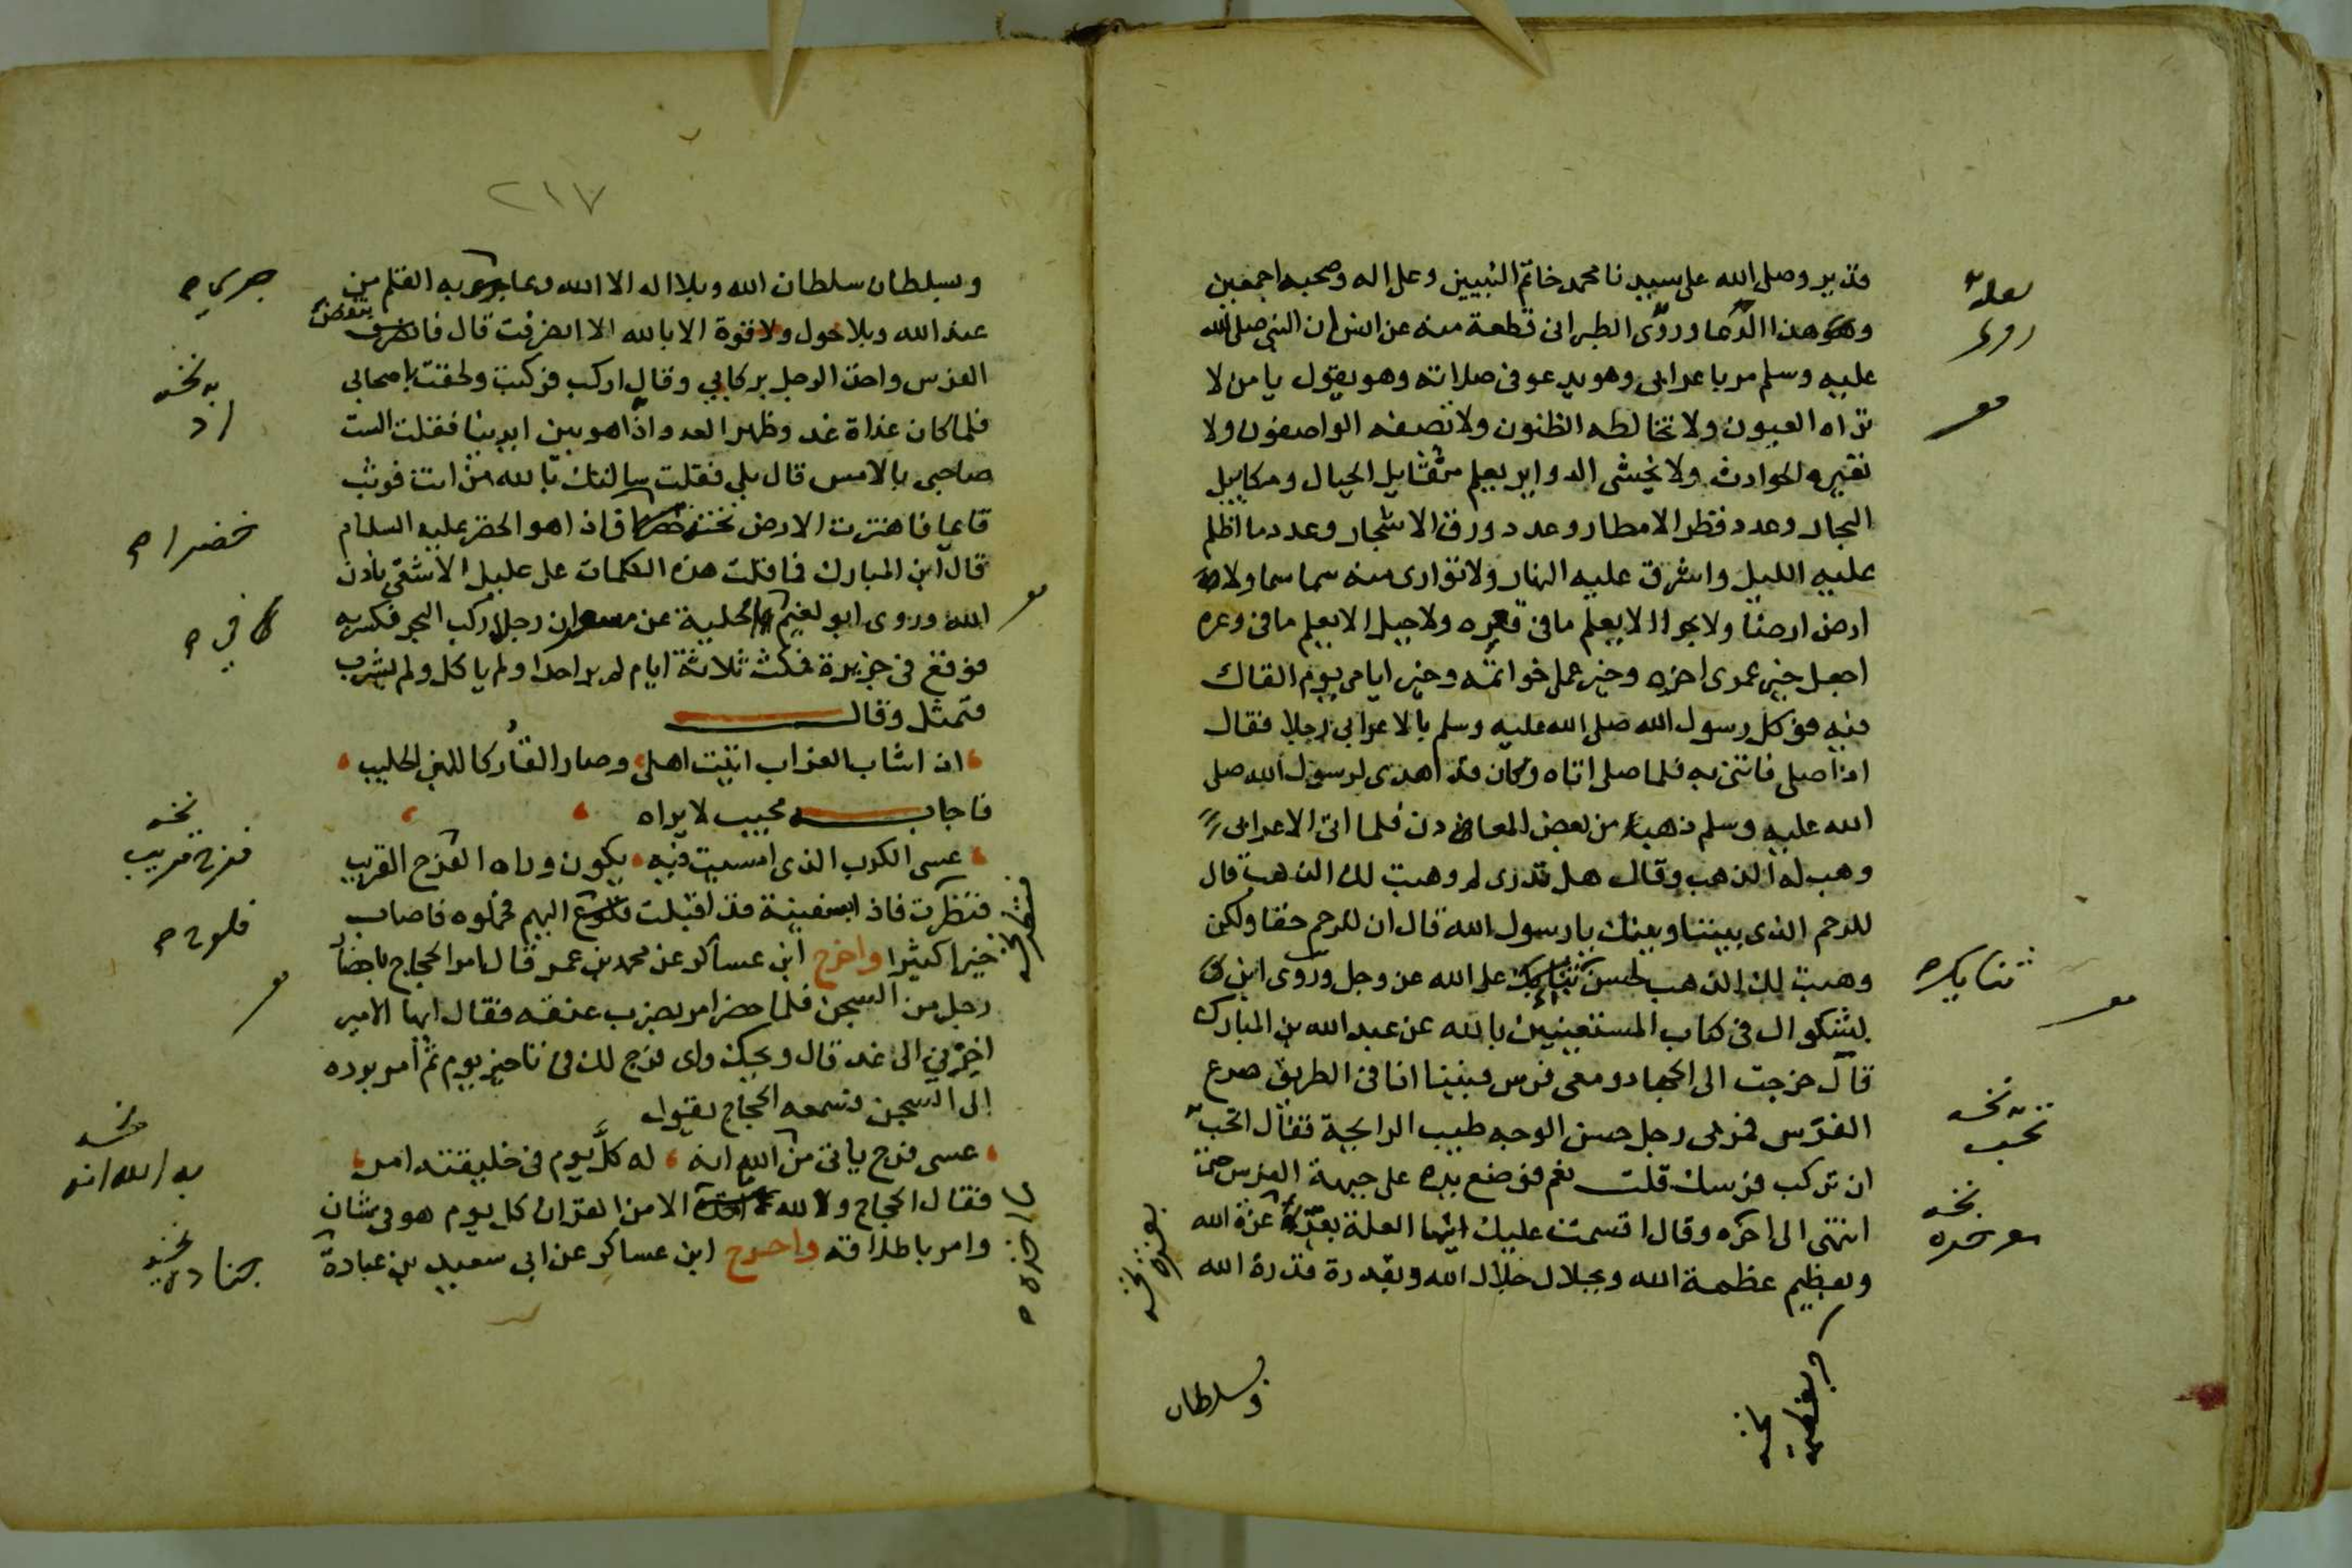 قدير وصلى الله على سيدنا محمد خاتم النبيين وعلى اله وصحبه اجمعين
هذا الدعا وروى الطبرانى قطعة منه عن انس ان النبى صلى الله
عليه وسلم مر باعرابى وهو يدعو فى صلاته وهو يقول يا من لا
تراه العيون ولا تخالطه الظنون ولا تصفه الواصفون ولا
تغيره الحوادث ولا يخشى الدواير يعلم مثقايل الجبال ومكاييل
البحار وعدد قطر الامطار وعدد ورق الاشجار وعدد ما اظلم
عليه الليل واشرق عليه النهار ولا توارى منه سما سما ولا
ارض ارضا ولا بحر الا يعلم ما فى قعره ولا جبل الا يعلم ما فى وعره
اجعل خير عمرى اخره وخير عملى خواتمه وخير ايامى يوم القاك
فيه فوكل رسول الله صلى الله عليه وسلم بالاعرابى رجلا فقال
اذا صلى فاتنى به فلما صلى اتاه وكان قد اهدى لرسول الله صلى
الله عليه وسلم ذهبا من بعض المعادن فلما اتى الاعرابى
وهب له الذهب وقال هل تدرى لم وهبت لك الذهب قال
للرحم الذى بيننا وبينك يا رسول الله قال ان للرحم حقا ولكن
وهبت لك الذهب لحسن ثنايك على الله عز وجل وروى ابن
بشكوال فى كتاب المستغيثين بالله عن عبد الله بن المبارك
قال خرجت الى الجهاد ومعى فرس فبينا انا فى الطريق صرع
الفرس فمر بى رجل حسن الوجه طيب الرايحة فقال اتحب
ان تركب فرسك قلت نعم فوضع يده على جبهة الفرس حتى
انتهى الى اخره وقال اقسمت عليك ايها العلة بعزة عزة الله
وبعظيم عظمة الله وبجلال جلال الله وبقدرة قدرة الله
وبسلطان
ثنايك
تحب
نسخه
مؤخره
٢١٧
وبسلطان سلطان الله وبلا اله الا الله وبما جرى به القلم من
عند الله وبلا حول ولا قوة الا بالله الا انصرفت قال فانتفض
الفرس واخذ الرجل بركابى وقال اركب فركبت ولحقت باصحابى
فلما كان غداة غد وظهر العدو اذا هو بين ايدينا فقلت الست
صاحبى بالامس قال بلى فقلت سالتك بالله من انت فوثب
قايما فاهتزت الارض تحته خضرا فاذا هو الخضر عليه السلام
قال ابن المبارك فما قلت هذه الكلمات على عليل الا شفى باذن
الله وروى ابو نعيم الحلية عن مسعر ان رجلا ركب البحر فكسر به
فوقع فى جزيرة فمكث ثلاثة ايام لم ير احدا ولم ياكل ولم يشرب
فتمثل وقال
اذا شاب الغراب اتيت اهلى وصار القار كاللبن الحليب
فاجابه مجيب لا يراه
عسى الكرب الذى امسيت فيه يكون وراه الفرج القريب
فنظرت فاذا بسفينة قد اقبلت فلوح اليهم فحملوه فاصاب
خيرا كثيرا واخرج ابن عساكر عن محمد بن عمر قال امر الحجاج باحضار
رجل من السجن فلما حضر امر بضرب عنقه فقال ايها الامير
اخرنى الى غد قال ويحك واى فرج لك فى تاخير يوم ثم امر برده
الى السجن فسمعه الحجاج يقول
عسى فرج ياتى من الله انه له كل يوم فى خليقته امر
فقال الحجاج والله ما اخذه الا من القران كل يوم هو فى شان
وامر باطلاقه واخرج ابن عساكر عن ابى سعيد بن عبادة
جرى
به نسخه
خضرا
فى
نسخه
فرج قريب
فلوح
نسخه
به الله انه
جناده